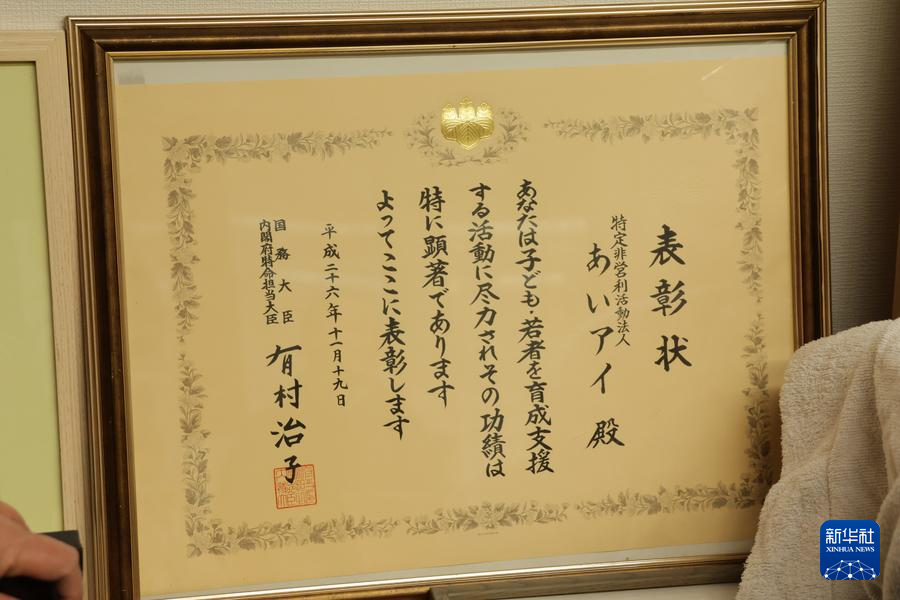 表彰状
特定非営利活動法人
あいアイ 殿
あなたは子ども・若者を育成支援
する活動に尽力されその功績は
特に顕著であります
よってここに表彰します
平成二十六年十一月十九日
国務大臣
内閣府特命担当大臣
有村治子
新华社
XINHUA NEWS